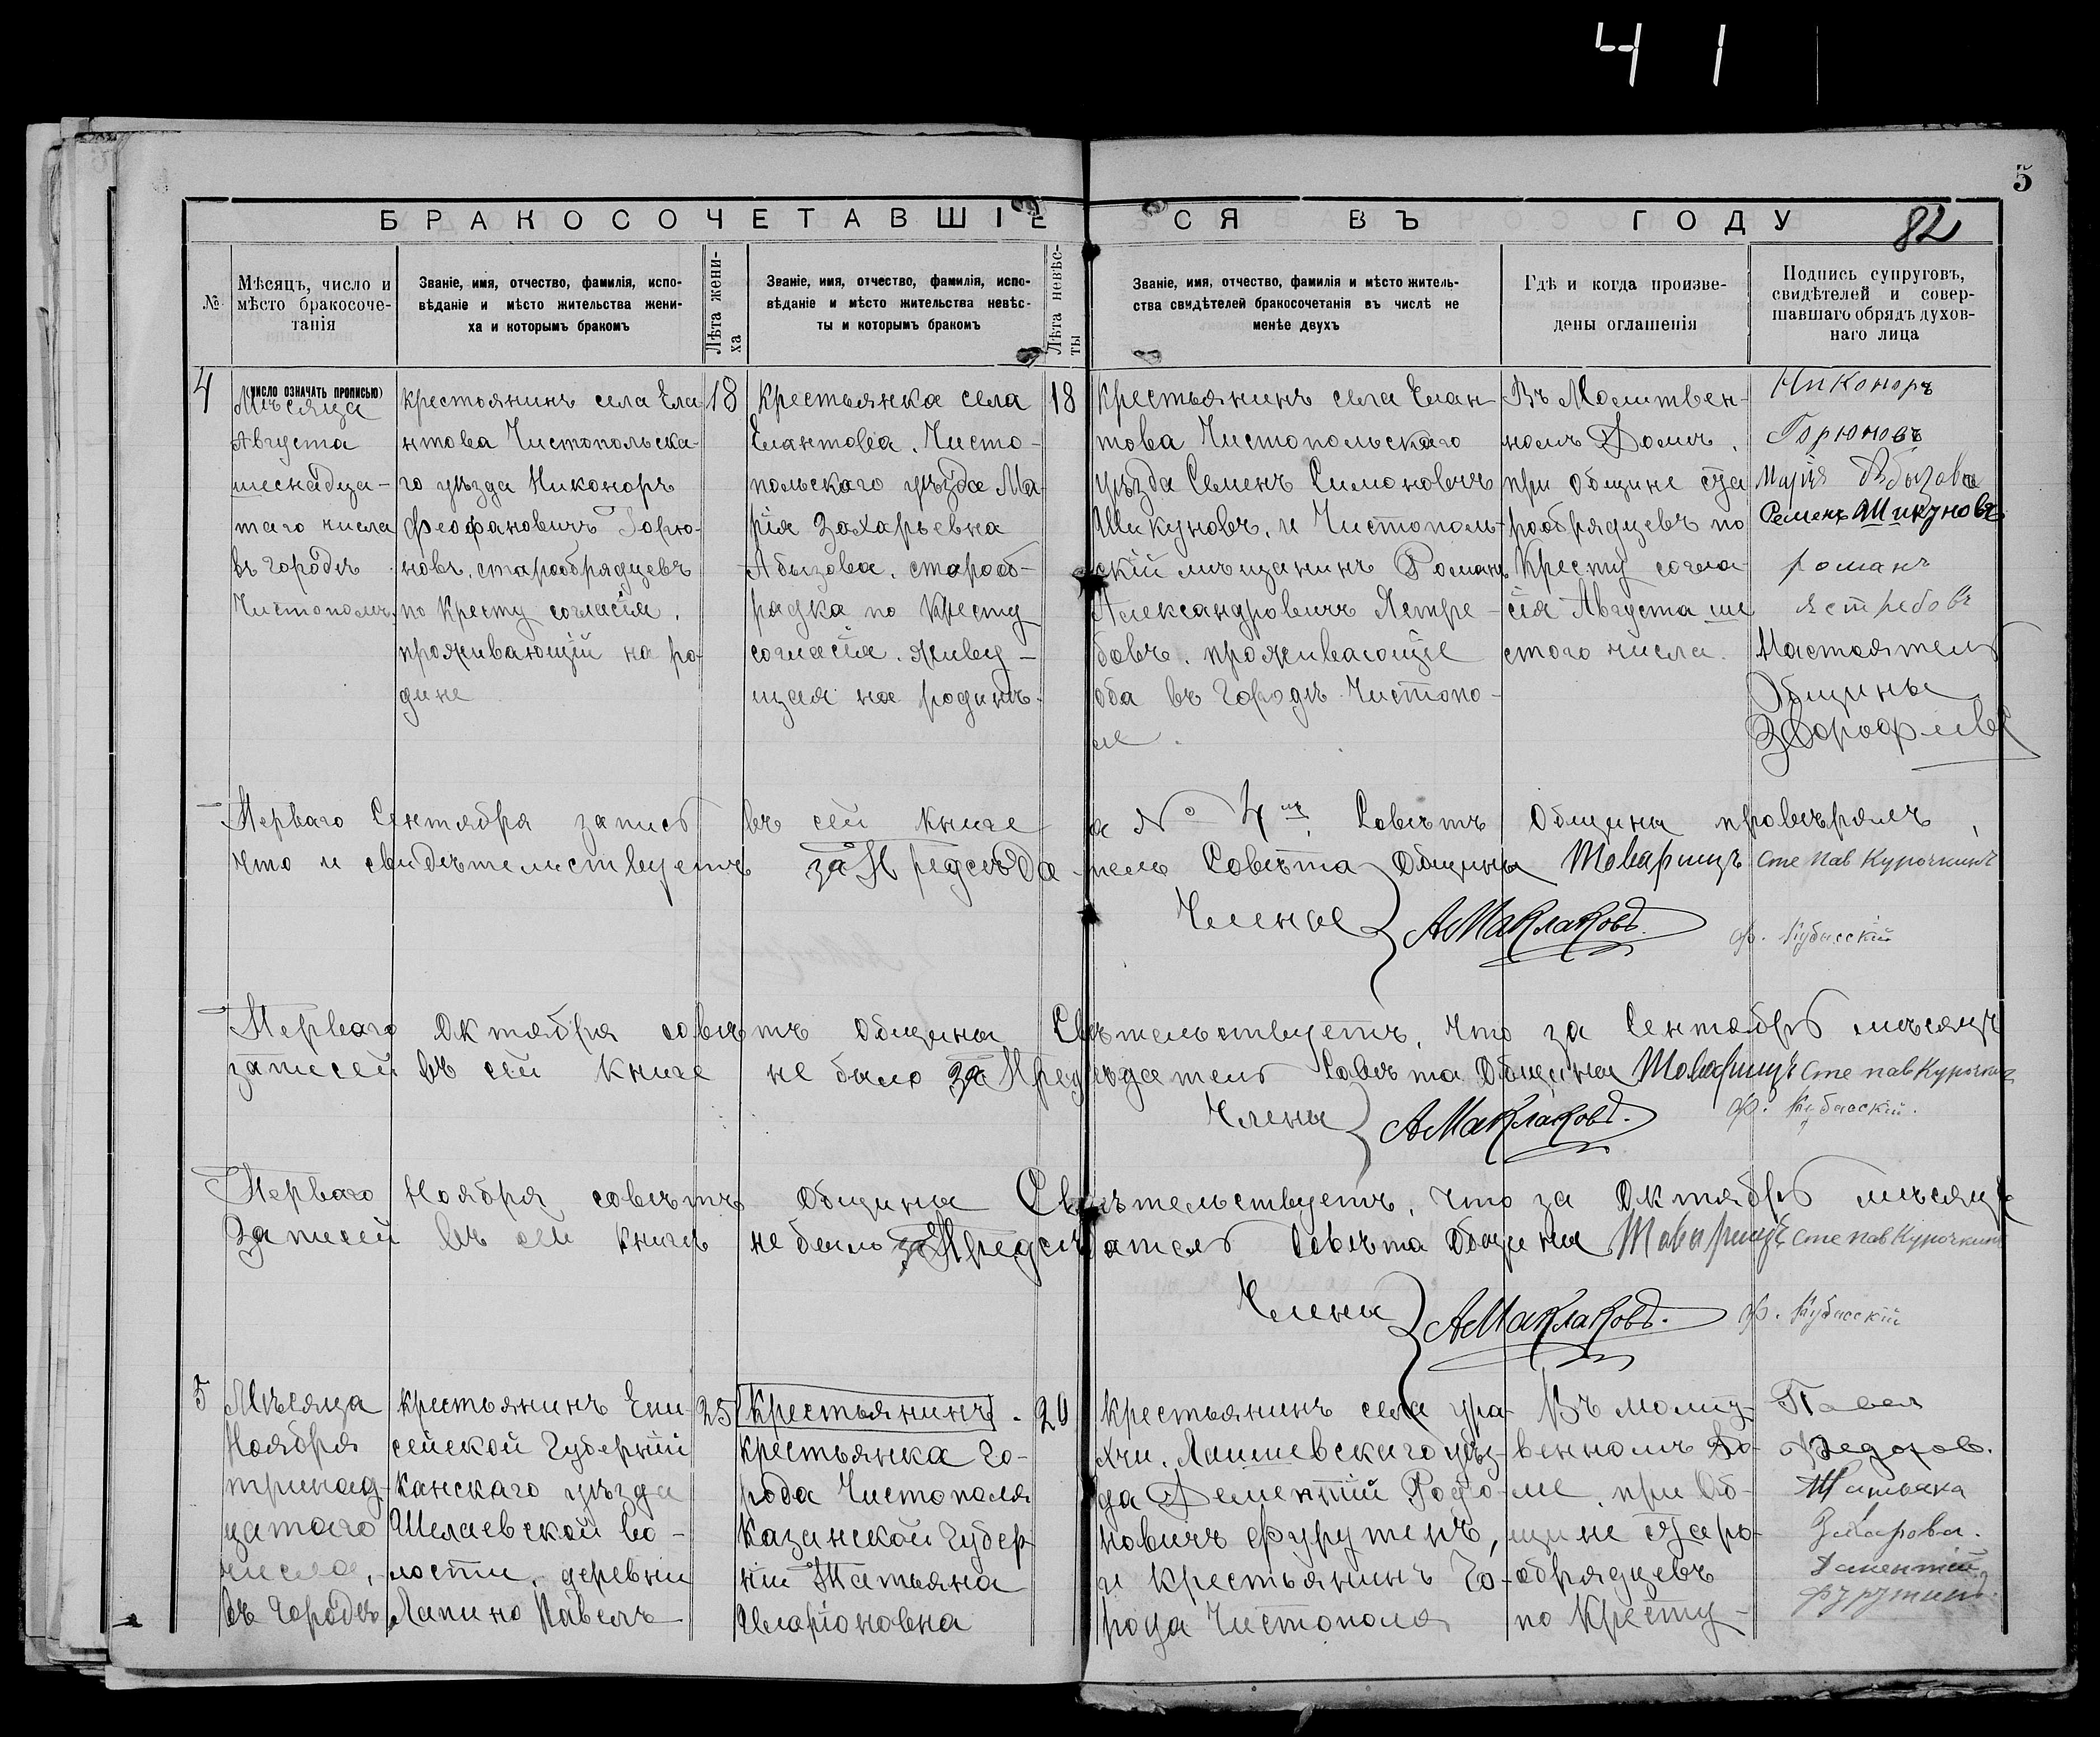 41
5
БРАКОСОЧЕТАВШІЕСЯ ВЪ ГОДУ
82
№
Мѣсяцъ, число и
мѣсто бракосоче-
танія
Званіе, имя, отчество, фамилія, испо-
вѣданіе и мѣсто жительства жени-
ха и которымъ бракомъ
Лѣта жени-
ха
Званіе, имя, отчество, фамилія, испо-
вѣданіе и мѣсто жительства невѣс-
ты и которымъ бракомъ
Лѣта невѣс-
ты
Званіе, имя, отчество, фамилія и мѣсто житель-
ства свидѣтелей бракосочетанія въ числѣ не
менѣе двухъ
Гдѣ и когда произве-
дены оглашенія
Подпись супруговъ,
свидѣтелей и совер-
шавшаго обрядъ духов-
наго лица
4
(число означать прописью)
Мѣсяца
Августа
шеснадца-
таго числа
въ городѣ
Чистополѣ
крестоянинъ села Ела
нтова Чистопольска-
го уѣзда Никоноръ
Феофановичъ Горю-
новъ, старообрядцевъ
по Кресту согласія,
проживающій на ро-
дине
18
Крестьянка села
Елантова, Чисто-
польскаго уѣзда Ма-
рія Захарьевна
Абызова, старооб-
рядка по Кресту
согласія, живу-
щая на родинѣ.
18
Крестьянинъ села Елан-
това Чистопольскаго
уѣзда Семенъ Симоновичъ
Шикуновъ, и Чистополь-
скій мѣщанинъ Романъ
Александровичъ Ястре-
бовъ, проживающіе
оба въ Городѣ Чистопо-
ле.
Въ Молитвен-
номъ Домѣ,
при общине ста
рообрядцевъ по
Кресту согла-
сія Августа ше
стого числа.
Никоноръ
Горюновъ
Марія Абызова
Семенъ Шикуновъ
романъ
ястребовъ
Настоятель
Общины
Перваго Сентября запись въ сей книге а № 4 Совѣтъ Общины провѣрялъ,
что и свидѣтельствуетъ за Предсѣдатель Совѣта Общины Товарищъ Степав Курочкинъ
Члены
АМаклаковъ.
Ф. Кубасскій
Перваго Октября совѣтъ Общины Свѣтельствуетъ, что за Сентябрь мѣсяцъ
записей въ сей книге не было за Предсѣдатель Совѣта Общины Товарищъ Степав Курочкин
Члены
АМаклаковъ.
Ф. Кубасскій.
Перваго Ноября совѣтъ Общины Свѣтельствуетъ, что за Октябрь мѣсяцъ
Записей въ сей книгѣ не было за Предсѣдатель Совѣта Общины Товарищъ Степав Курочкин
Члены
АМаклаковъ.
Ф. Кубасскій
5
Мѣсяца
Ноября
тринад-
цатаго
числа,
въ городѣ
крестьянинъ Ени
сейской Губерніи
Канскаго уѣзда
Шелаевской во-
лости, деревни
Лапино Павелъ
25
Крестьянинъ.
крестьянка го-
рода Чистополя
Казанской Губер-
ніи Татьяна
Иларіоновна
20
Крестьянинъ села
Лаишевскаго уѣз-
да Дементій
и крестьянинъ Го-
рода Чистополя
Въ молит-
венномъ До-
ме, при Об-
щине Старо-
обрядцевъ
по Кресту-
Павел
Федоров.
Татьяна